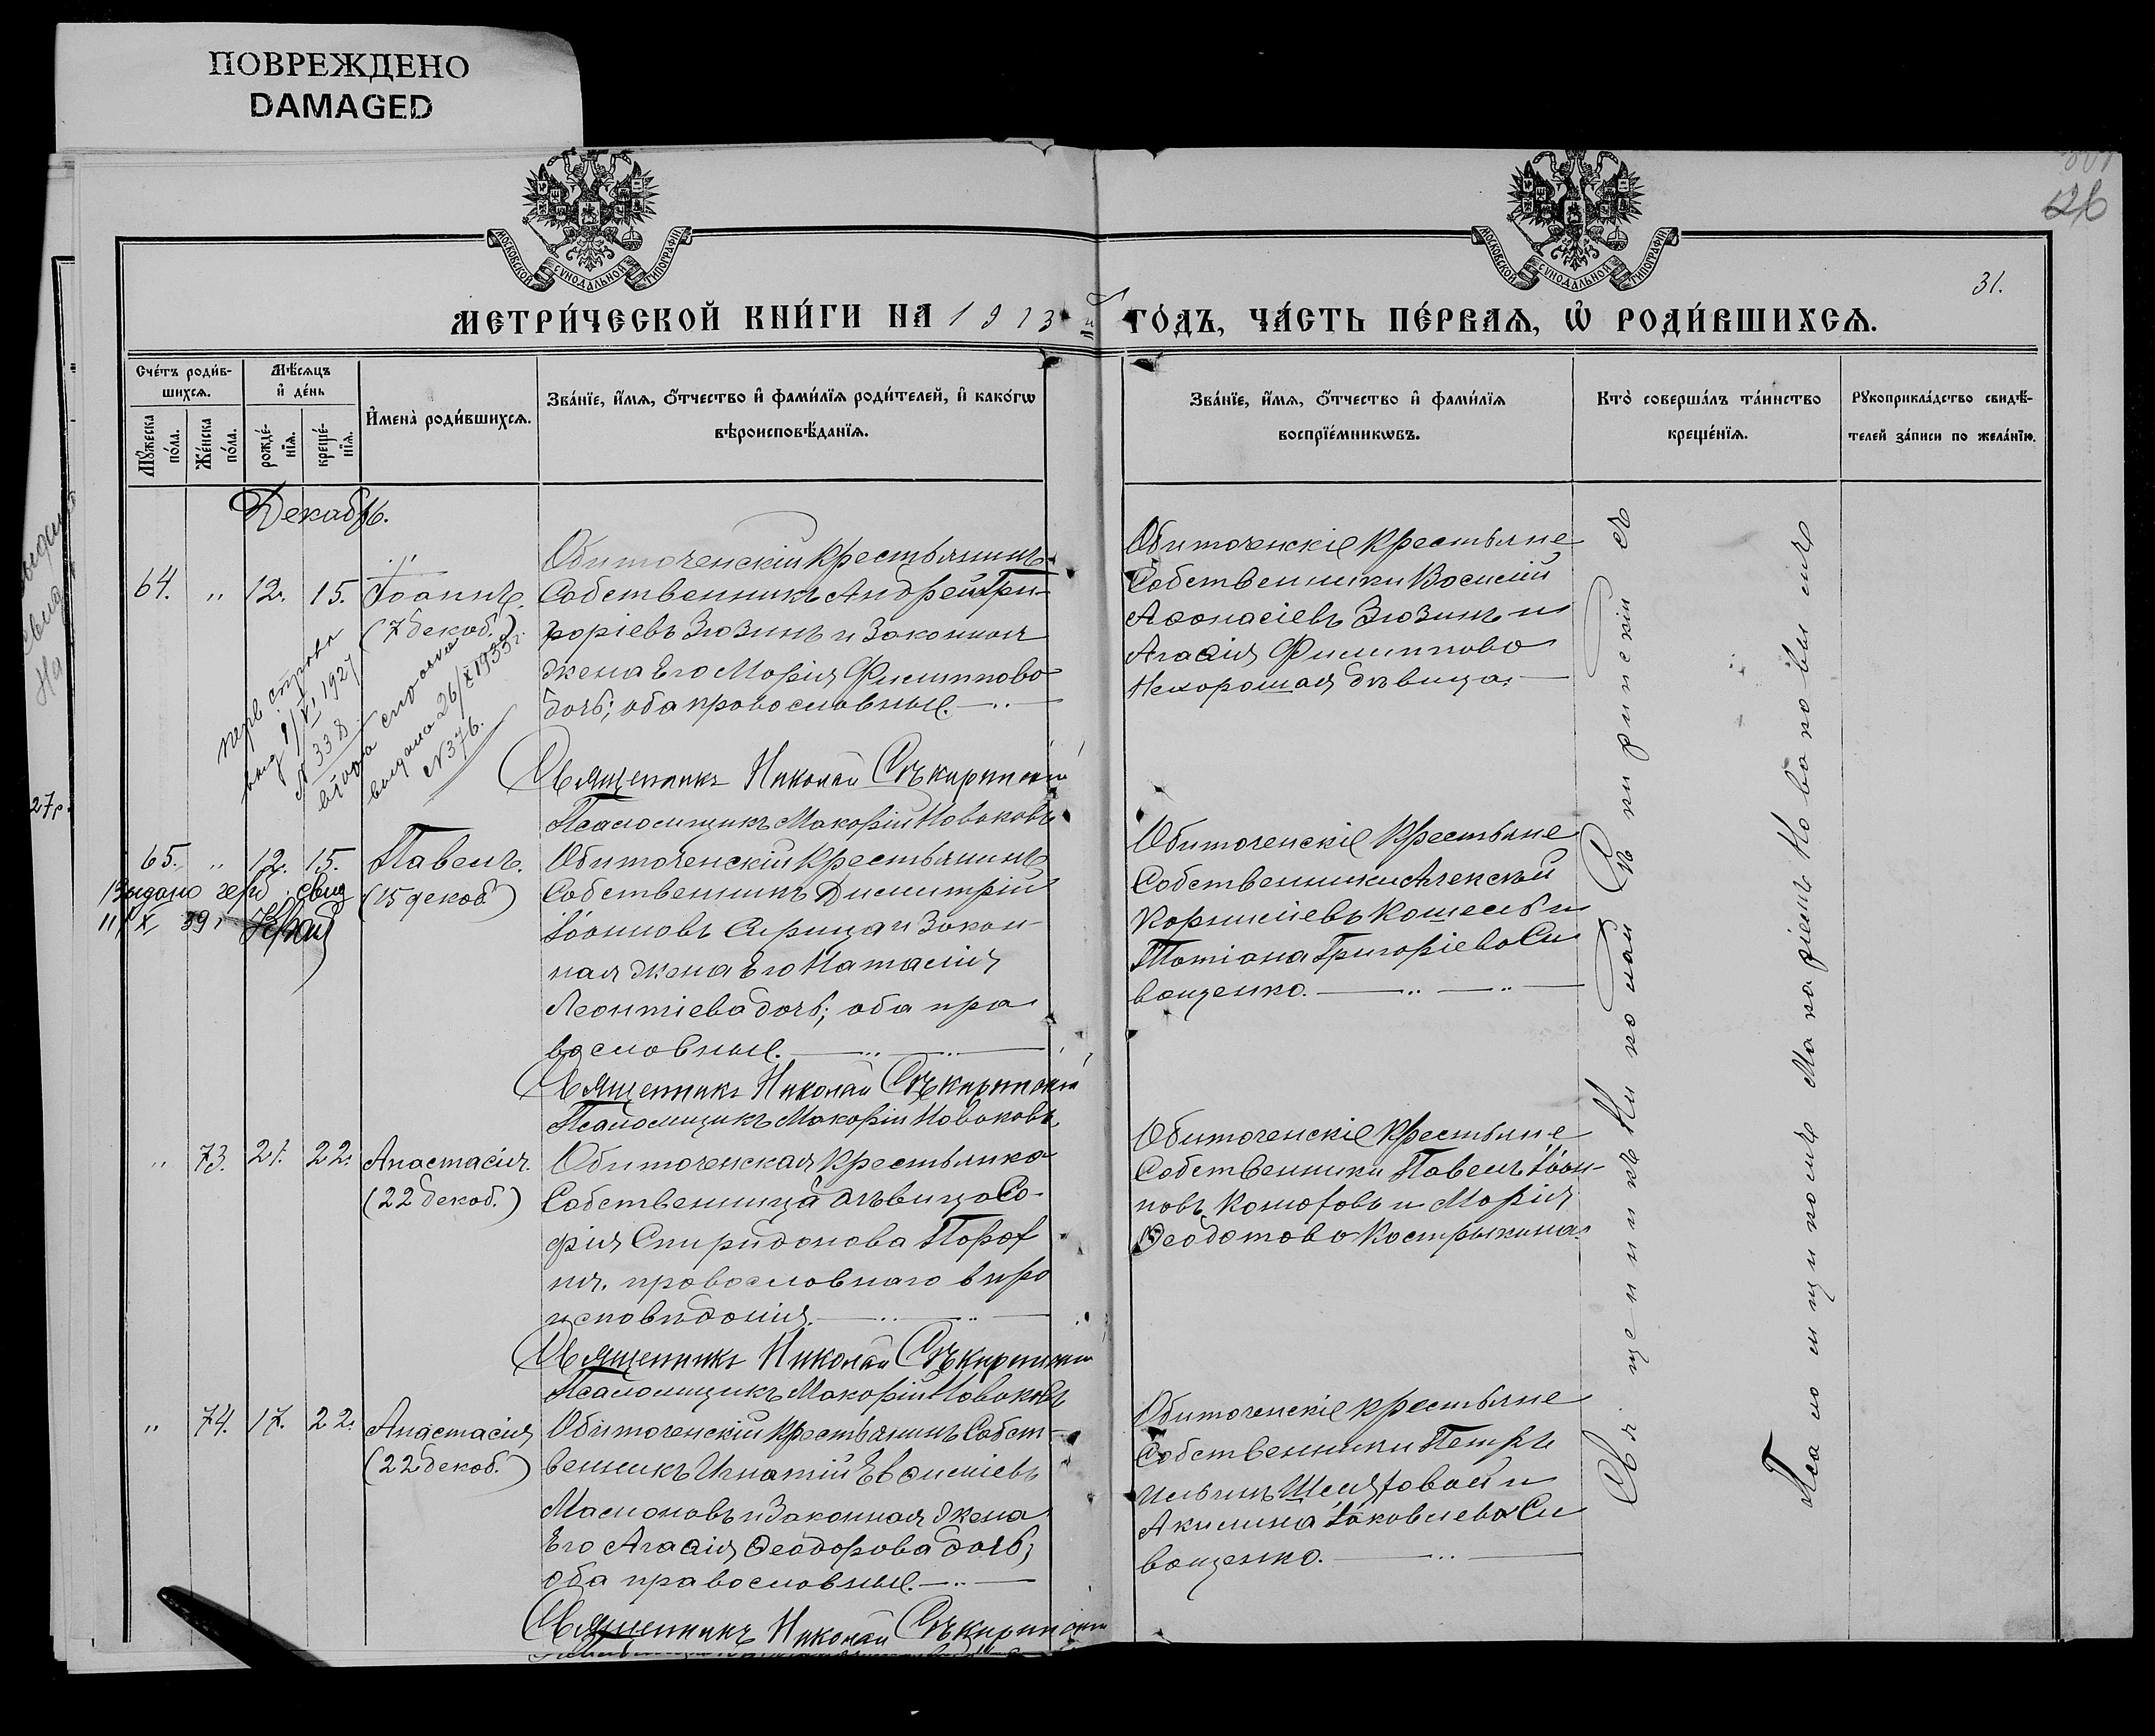 ПОВРЕЖДЕНО
DAMAGED
26
31.
МОСКОВСКОЙ СѴНОДАЛЬНОЙ ТИПОГРАФІИ
МОСКОВСКОЙ СѴНОДАЛЬНОЙ ТИПОГРАФІИ
МЕТРИ́ЧЕСКОЙ КНИ́ГИ НА 1913 й ГО́ДЪ, ЧА́СТЬ ПЕ́РВАѦ, Ѡ РОДИ́ВШИХСѦ.
Сче́тъ роди́в-
шихсѧ.
Мꙋ́жеска по́ла.
Же́нска по́ла.
Мѣ́сѧцъ
и҆ де́нь
рожде́-
нїѧ.
креще́-
нїѧ.
И҆мена̀ роди́вшихсѧ.
Зва́нїе, и҆́мѧ, ѻ҆́тчество и҆ фами́лїѧ роди́телей, и҆ како́гѡ
вѣроисповѣ́данїѧ.
Зва́нїе, и҆́мѧ, ѻ҆́тчество и҆ фами́лїѧ
воспрїе́мникѡвъ.
Кто̀ соверша́лъ та́инство
креще́нїѧ.
Рꙋкоприкла́дство свидѣ́-
телей за́писи по жела́нїю.
Декабрь.
64. " 12. 15. Іоаннъ.
(7 декаб.)
Обиточенскій крестьянинъ
Собственникъ Андрей Гри-
горіевъ Зюзинъ и законная
жена его Марія Филиппова
дочь; оба православные.
Священникъ Николай Сѣкиринскій
Псаломщикъ Макарій Новаковъ
Обиточенскіе крестьяне
Собственники Василій
Аѳанасіевъ Зюзинъ и
Агаѳія Филиппова
Нехорошая дѣвица.
выд 9/VI 1927
N 338
выдана 26/X 1933 г.
N 376.
27 г.
65. " 12. 15. Павелъ.
(15 декаб.)
Выдано герб. свид
11/X 39 г
Обиточенскій крестьянинъ
Собственникъ Димитрій
Іоанновъ Сирица и закон-
ная жена его Наталія
Леонтіева дочь; оба пра
вославные.
Священникъ Николай Сѣкиринскій
Псаломщикъ Макарій Новаковъ
Обиточенскіе крестьяне
Собственники Алексѣй
Корниліевъ Кошель и
Татіана Григоріева Си
ващенко.
" 73. 21. 22. Анастасія.
(22 декаб.)
Обиточенская крестьянка
Собственница дѣвица Со-
фія Спиридонова Порох
ня, православнаго вѣро
исповѣданія.
Священникъ Николай Сѣкиринскій
Псаломщикъ Макарій Новаковъ
Обиточенскіе крестьяне
Собственники Павелъ Іоан-
новъ Комаровъ и Марія
Ѳеодотова Кострыкина.
" 74. 17. 22. Анастасія
(22 декаб.)
Обиточенскій крестьянинъ Собст-
венникъ Игнатій Евсиміевъ
Маслоновъ и законная жена
его Агаѳія Ѳеодорова дочь;
оба православные.
Священникъ Николай Сѣкиринскій
Обиточенскіе крестьяне
Собственники Петръ
Ильинъ Шелудовай и
Акилина Іаковлева Си
ващенко.
Священникъ Николай Сѣкиринскій съ
Псаломщикомъ Макаріемъ Новаковымъ